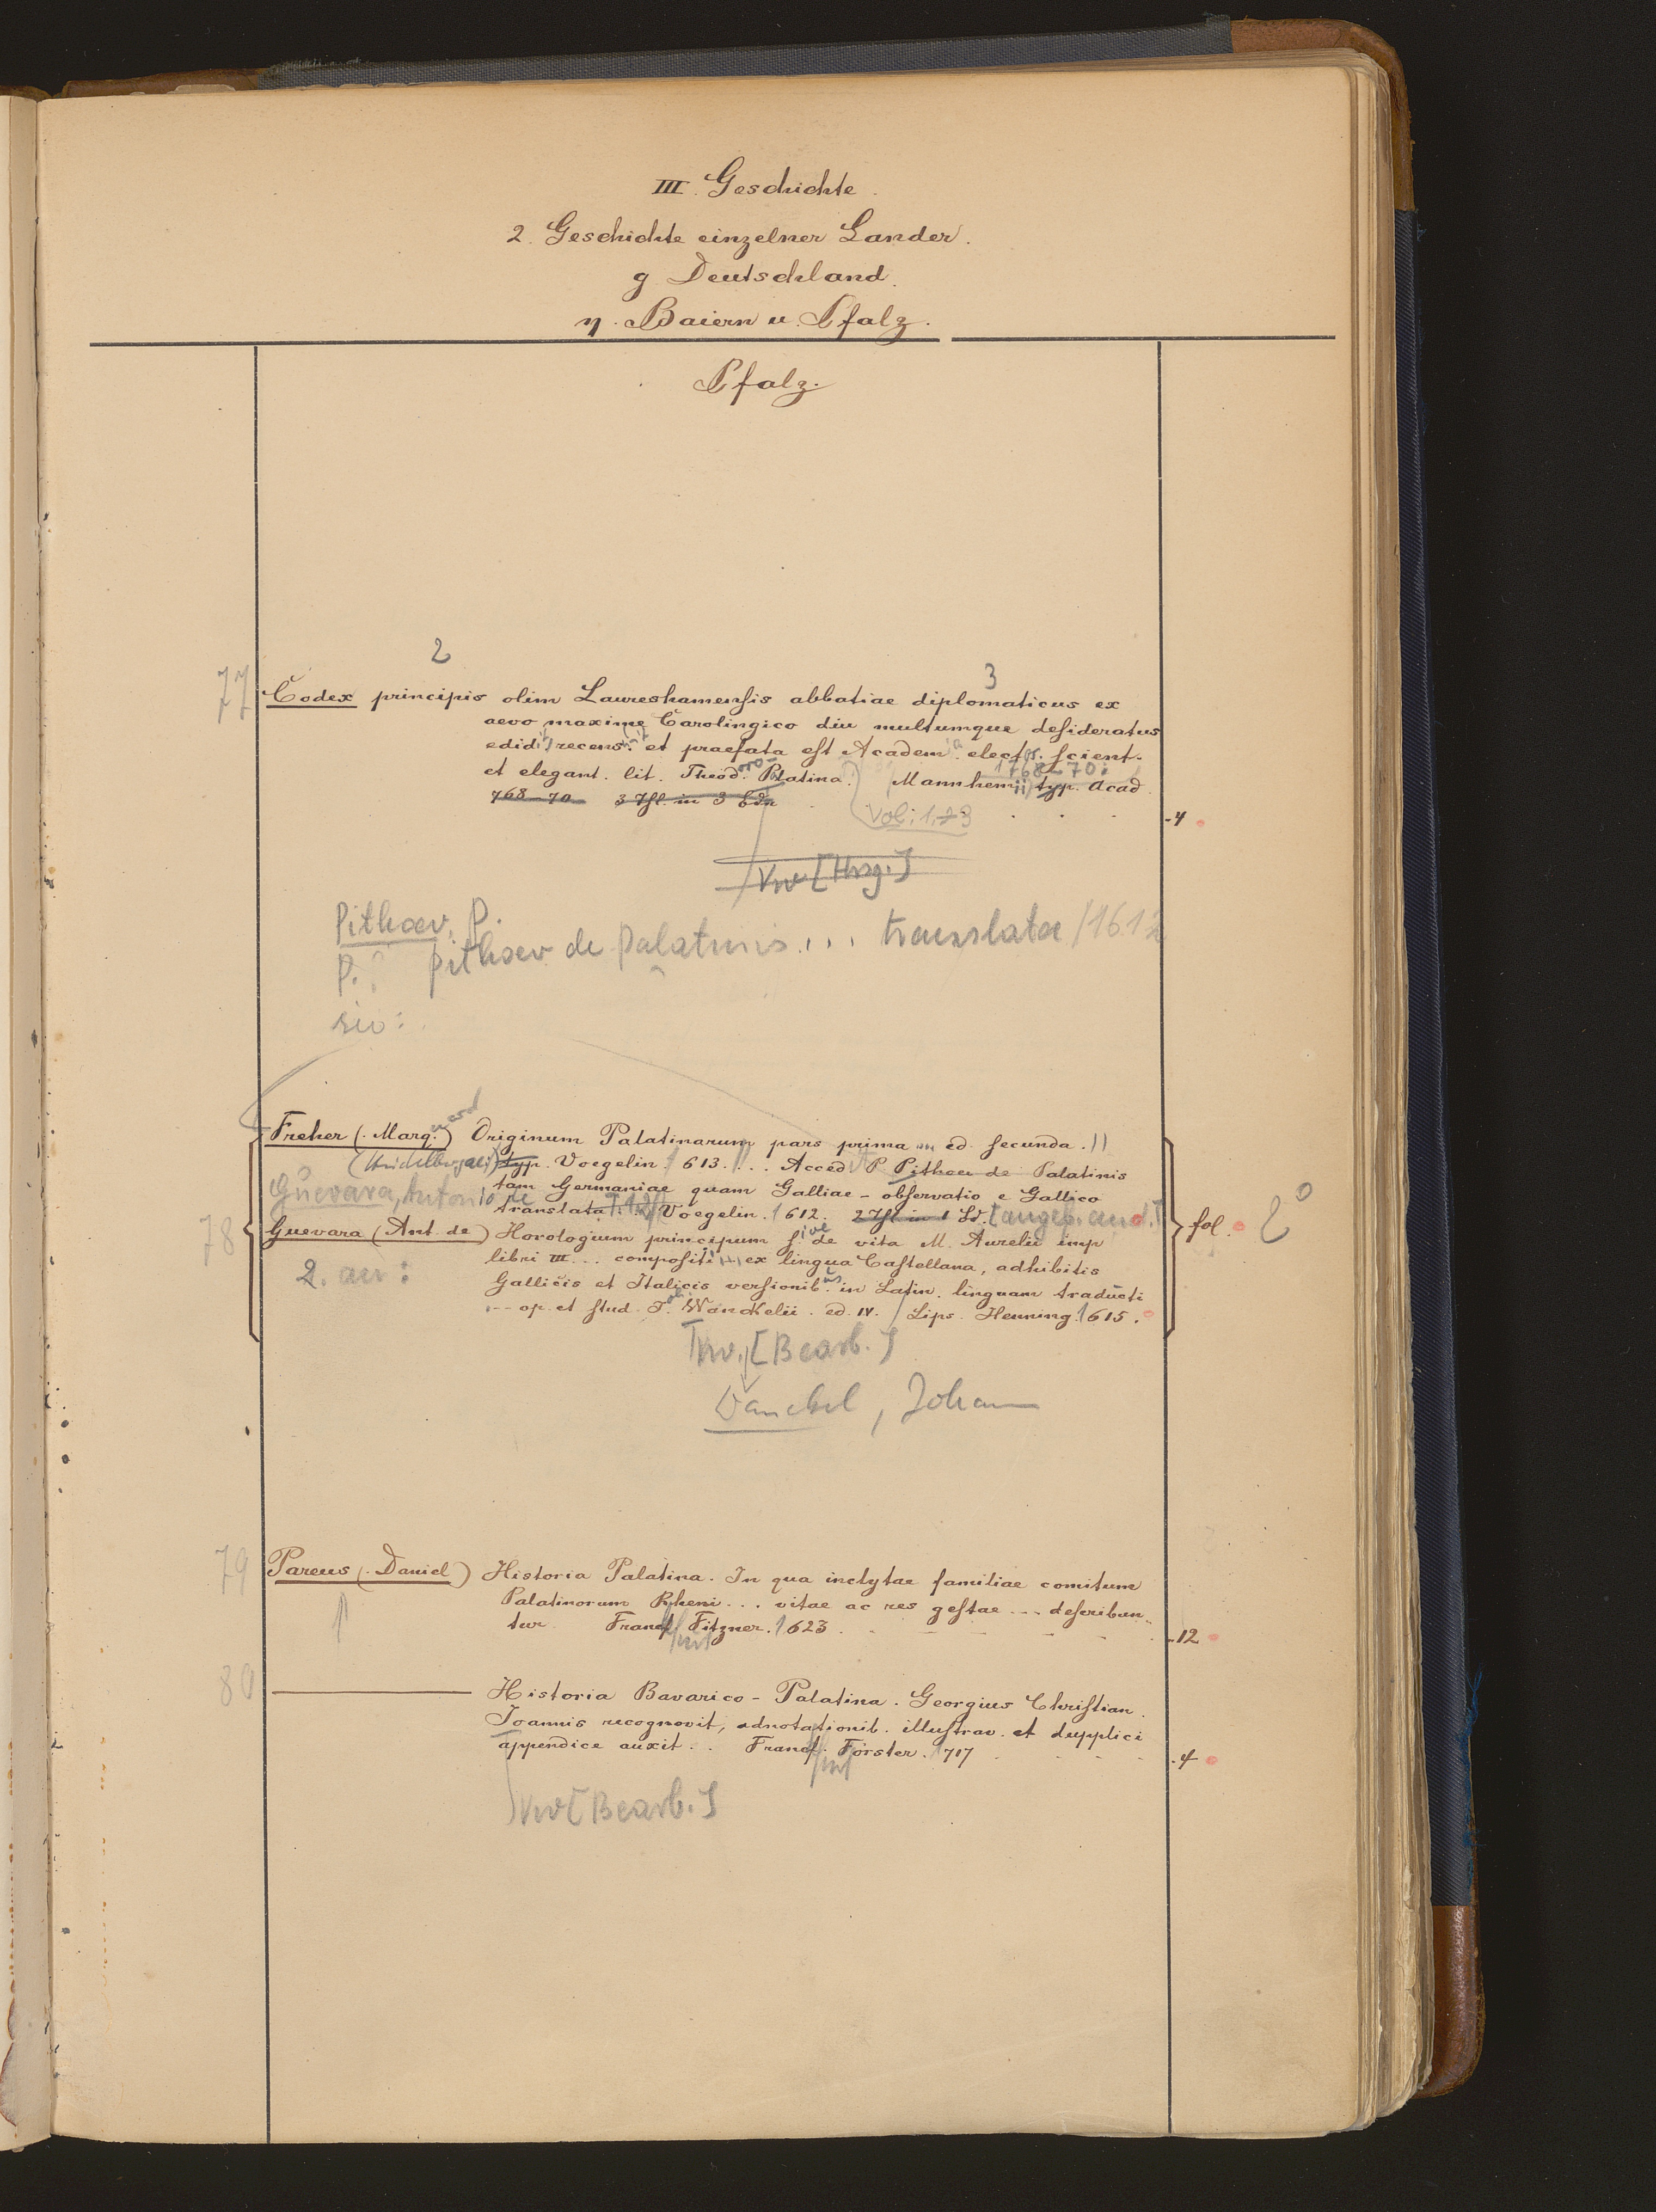 III. Geschichte.
2. Geschichte einzelner Länder.
g Deutschland.
η. Baiern u. Pfalz.
Pfalz.
2
3
77 Codex principis olim Laureshamensis abbatiae diplomaticus ex
aevo maxime Carolingico diu multumque desideratus
edidit recensuit et praefata est Academia elect. scient.
et elegant. lit. Theodoro-Palatina. Mannhemii typ. Acad.
1768-70:
768-70 3 Thl. in 3 Bdn
Vol: 1, 2, 3 4
Vw [Hrsg.]
Pithoev, P.
P. Pithoev de Palatinis ... translata / 1612
siv:
Freher (Marquard) Originum Palatinarum pars prima ... ed. secunda.
(Heidelbergae) typ. Voegelin. 1613. ... Acced. P. Pithoei de Palatinis
tam Germaniae quam Galliae - observatio e Gallico
Guevara, Antonio de translata. Voegelin. 1612. 2 Thl. in 1 Bd. [angeb. an d.]
78 Guevara (Ant. de) Horologium principum sive de vita M. Aurelii imp
fol. 2°
libri III ... compositi ex lingua Castellana, adhibitis
2. an:
Gallicis et Italicis versionib. in Latin. linguam traducti
... op. et stud. Joh. Wanckelii. ed. IV. Lips. Henning. 1615.
Vw. [Bearb.]
Wanckel, Johann
79 Pareus (Daniel) Historia Palatina. In qua inclytae familiae comitum
Palatinorum Rheni ... vitae ac res gestae ... describun-
tur. Francf. Fitzner. 1623. 12
80 — Historia Bavarico-Palatina. Georgius Christian.
Joannis recognovit, adnotationib. illustrav. et dupplici
appendice auxit .. Francf. Förster. 1717 4
Vw [Bearb.]